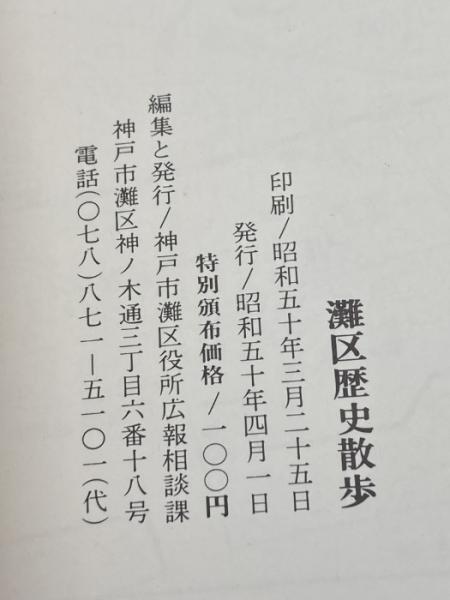 灘区歴史散歩
印刷/昭和五十年三月二十五日
発行/昭和五十年四月一日
特別頒布価格/一〇〇円
編集と発行/神戸市灘区役所広報相談課
神戸市灘区神ノ木通三丁目六番十八号
電話(〇七八)八七一―五一〇一(代)